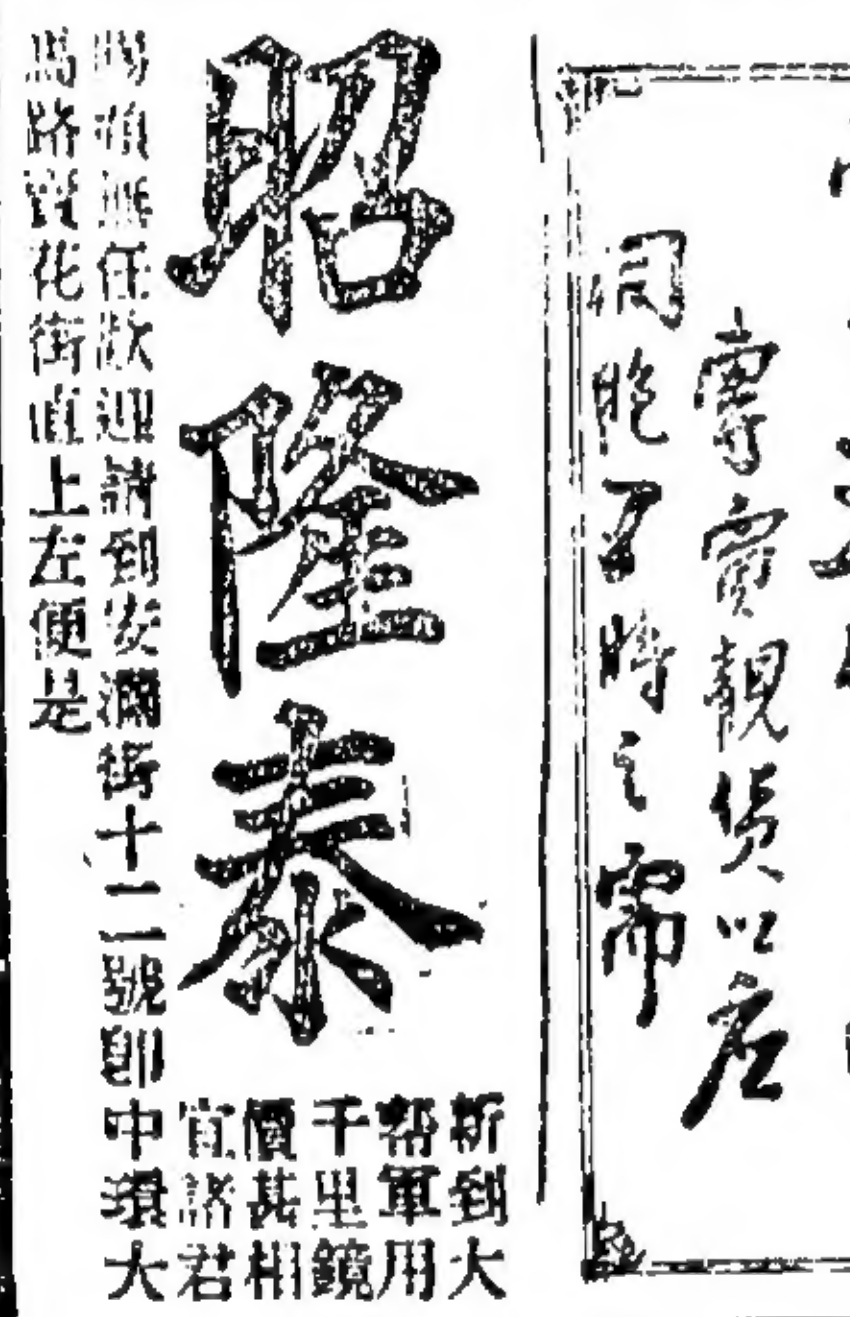 專賣靚貨以應
同胞了時之需
昭隆泰
新到大
幫軍用
千里鏡
價甚相
宜諸君
賜顧無任歡迎請到安瀾街十二號卽中環大
馬路賣花街直上左便是